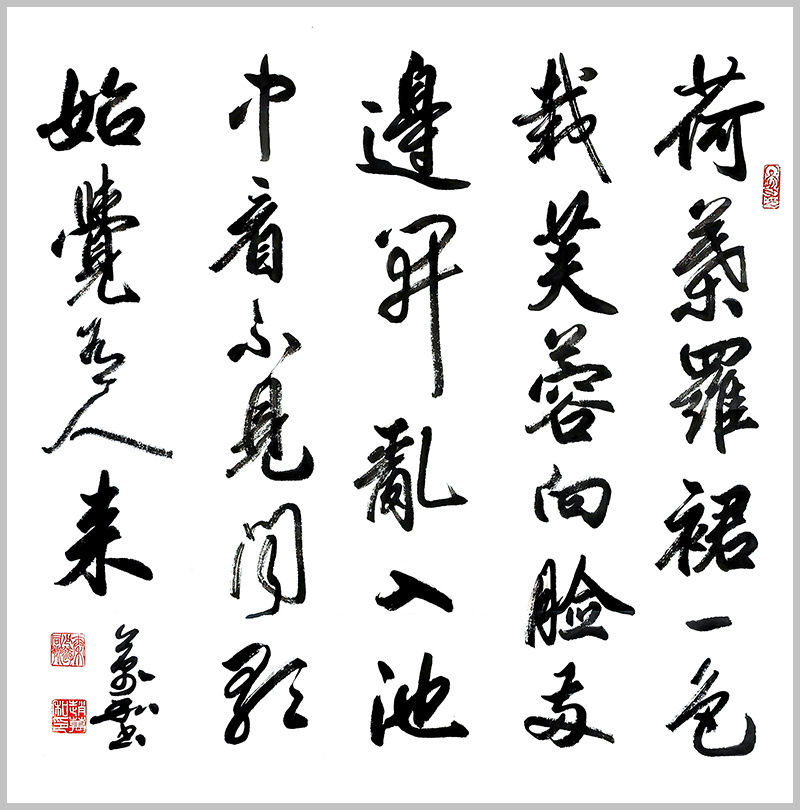 荷葉羅裙一色
裁芙蓉向脸兩
邊開亂入池
中看不見聞歌
始覺有人来
萬和書